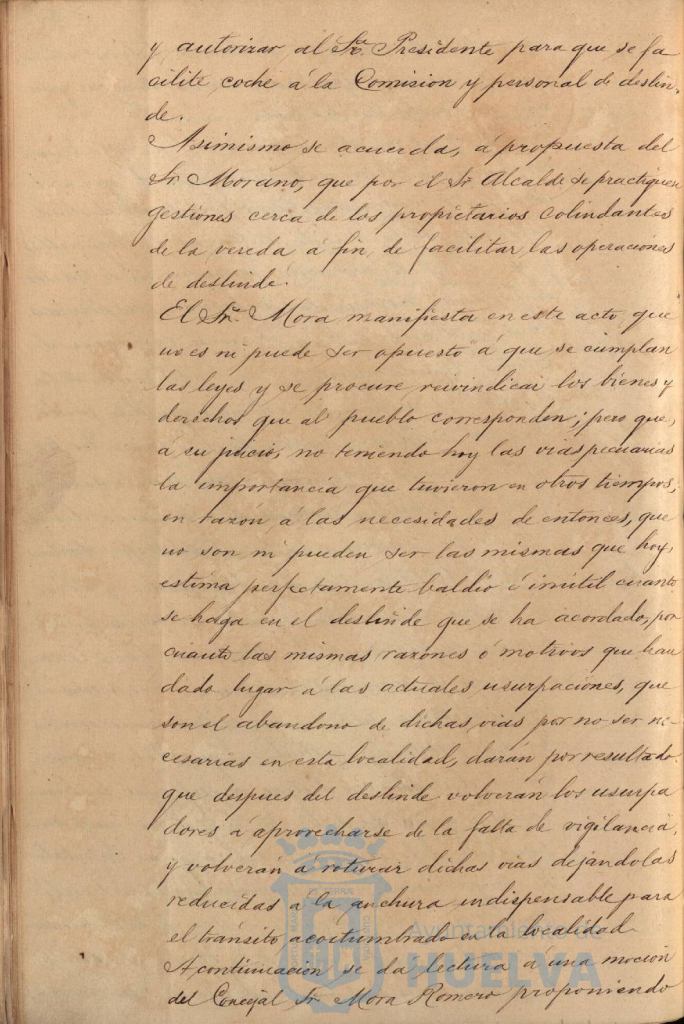 y autorizar al Sr. Presidente para que se fa
cilite coche á la Comision y personal de deslin-
de.
Asimismo se acuerda, á propuesta del
Sr. Morano, que por el Sr. Alcalde se practiquen
gestiones cerca de los propietarios colindantes
de la vereda á fin de facilitar las operaciones
de deslinde.
El Sr. Mora manifiesta en este acto que
no es ni puede ser opuesto á que se cumplan
las leyes y se procure reivindicar los bienes y
derechos que al pueblo corresponden; pero que,
á su juicio, no teniendo hoy las vias pecuarias
la importancia que tuvieron en otros tiempos,
en razón á las necesidades de entonces, que
no son ni pueden ser las mismas que hoy,
estima perfectamente baldio é inutil cuanto
se haga en el deslinde que se ha acordado, por
cuanto las mismas razones ó motivos que han
dado lugar á las actuales usurpaciones, que
son el abandono de dichas vias por no ser ne-
cesarias en esta localidad, darán por resultado
que despues del deslinde volverán los usurpa
dores á aprovecharse de la falta de vigilancia,
y volverán á roturar dichas vias dejándolas
reducidas á la anchura indispensable para
el tránsito acostumbrado en la localidad
A continuación se da lectura á una moción
del Concejal Sr. Mora Romero proponiendo
Ayuntamiento de
HUELVA